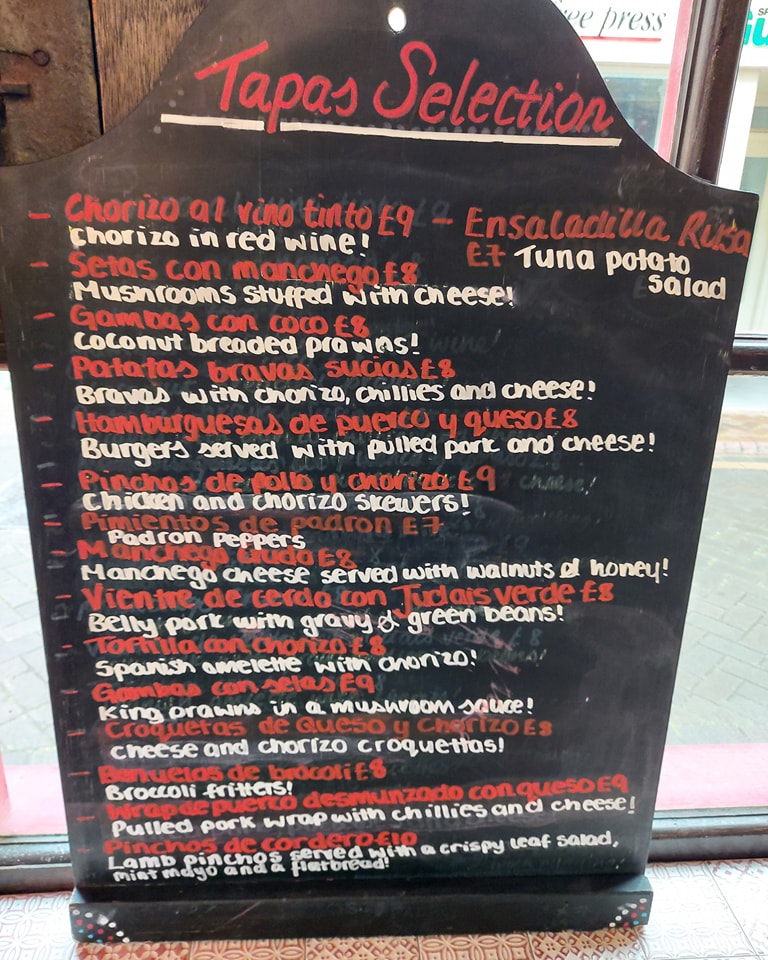 ee press
Tapas Selection
- Chorizo al vino tinto £9
Chorizo in red wine!
- Setas con manchego £8
Mushrooms stuffed with cheese!
- Gambas con coco £8
Coconut breaded prawns!
- Patatas bravas sucias £8
Bravas with chorizo, chillies and cheese!
- Hamburguesas de puerco y queso £8
Burgers served with pulled pork and cheese!
- Pinchos de pollo y chorizo £9
Chicken and chorizo skewers!
- Pimientos de padron £7
Padron peppers
- Manchego £8
Manchego cheese served with walnuts & honey!
- Vientre de cerdo con Judais verde £8
Belly pork with gravy & green beans!
- Tortilla con chorizo £8
Spanish omelette with chorizo!
- Gambas con setas £9
King prawns in a mushroom sauce!
- Croquetas de Queso y Chorizo £8
cheese and chorizo croquettas!
- Bunuelos de brocoli £8
Broccoli fritters!
- Wrap de puerco desmunzado con queso £9
Pulled pork wrap with chillies and cheese!
- Pinchos de cordero £10
Lamb pinchos served with a crispy leaf salad,
mint mayo and a flatbread!
- Ensaladilla Rusa
£7 Tuna potato
salad